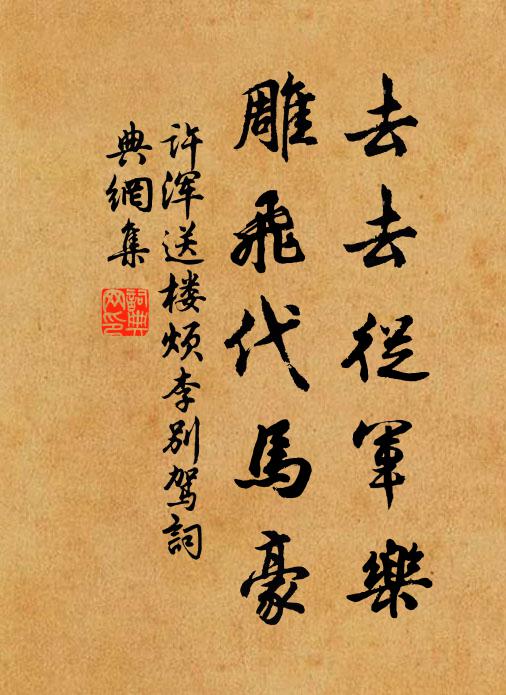 去去從軍樂
雕飛代馬豪
许浑送楼烦李别驾詞
典網集
詞典網印